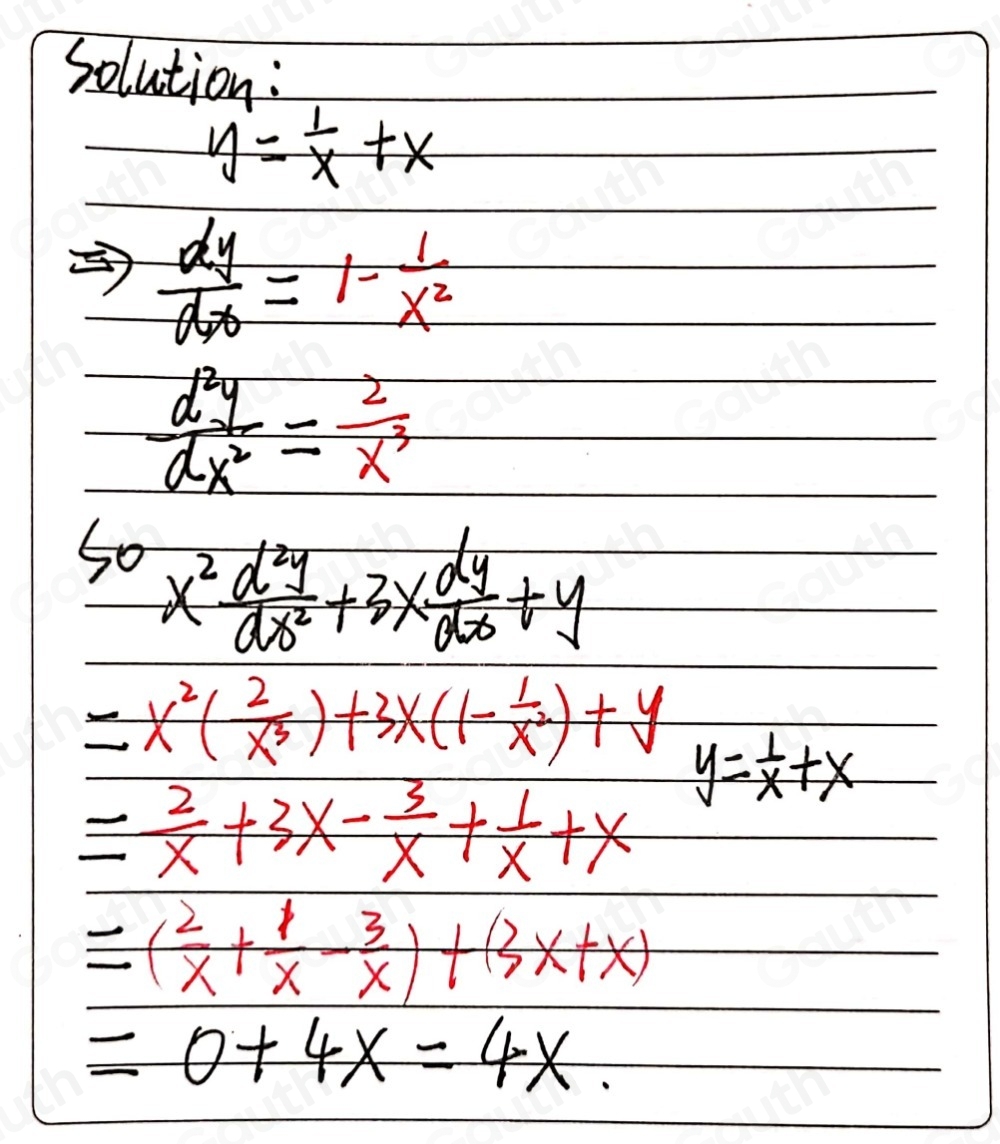 Solution:
y = 1/x + x
⇒ dy/dx = 1 - 1/x²
d²y/dx² = 2/x³
So x² d²y/dx² + 3x dy/dx + y
= x²(2/x³) + 3x(1 - 1/x²) + y
y = 1/x + x
= 2/x + 3x - 3/x + 1/x + x
= (2/x + 1/x - 3/x) + (3x + x)
= 0 + 4x = 4x.